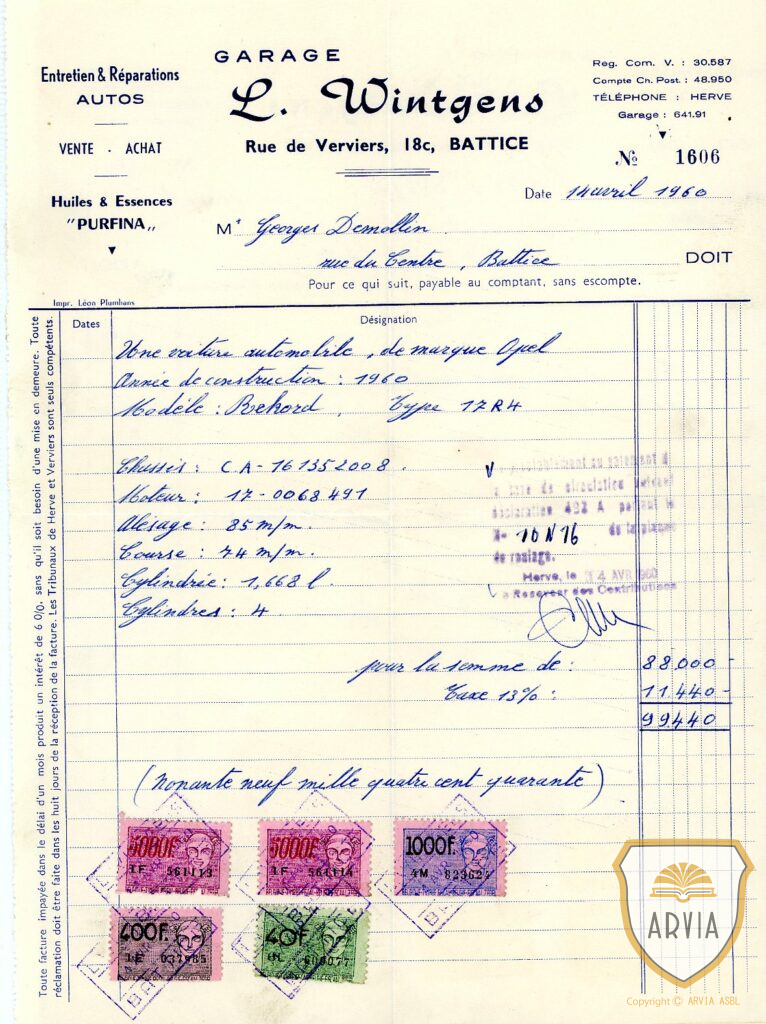 GARAGE
L. Wintgens
Rue de Verviers, 18c, BATTICE
Entretien & Réparations
AUTOS
VENTE - ACHAT
Huiles & Essences
"PURFINA„
Reg. Com. V. : 30.587
Compte Ch. Post. : 48.950
TÉLÉPHONE : HERVE
Garage : 641.91
№ 1606
Date 14 avril 1960
Mr Georges Demollin
rue du Centre, Battice DOIT
Pour ce qui suit, payable au comptant, sans escompte.
Impr. Léon Plumhans
Dates Désignation
Une voiture automobile, de marque Opel
Année de construction : 1960
Modèle : Rekord, Type 17R4
Chassis : C.A-161352008.
Moteur : 17-0068491
Alésage : 85 m/m.
Course : 74 m/m.
Cylindrée : 1,668 l.
Cylindres : 4
taxe de circulation
déclaration 492 A
No 10 N 76 de la plaque
de roulage.
Herve, le 14 AVR 1960
Le Receveur des Contributions
pour la somme de : 88.000 -
Taxe 13% : 11.440 -
99.440
(nonante neuf mille quatre cent quarante)
5000F 1F 561113
5000F 1F 561114
1000F. 4M
400F. 1E 037985
40F.
Toute facture impayée dans le délai d'un mois produit un intérêt de 6 0/0. sans qu'il soit besoin d'une mise en demeure. Toute
réclamation doit être faite dans les huit jours de la réception de la facture. Les Tribunaux de Herve et Verviers sont seuls compétents.
ARVIA
Copyright © ARVIA ASBL